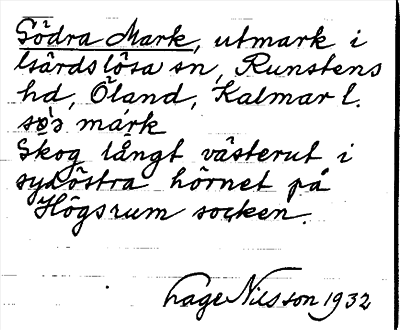 Södra Mark, utmark i
Gärdslösa sn, Runstens
hd, Öland, Kalmar l.
mark
Skog långt västerut i
sydöstra hörnet på
Högsrum socken.
Nilsson 1932